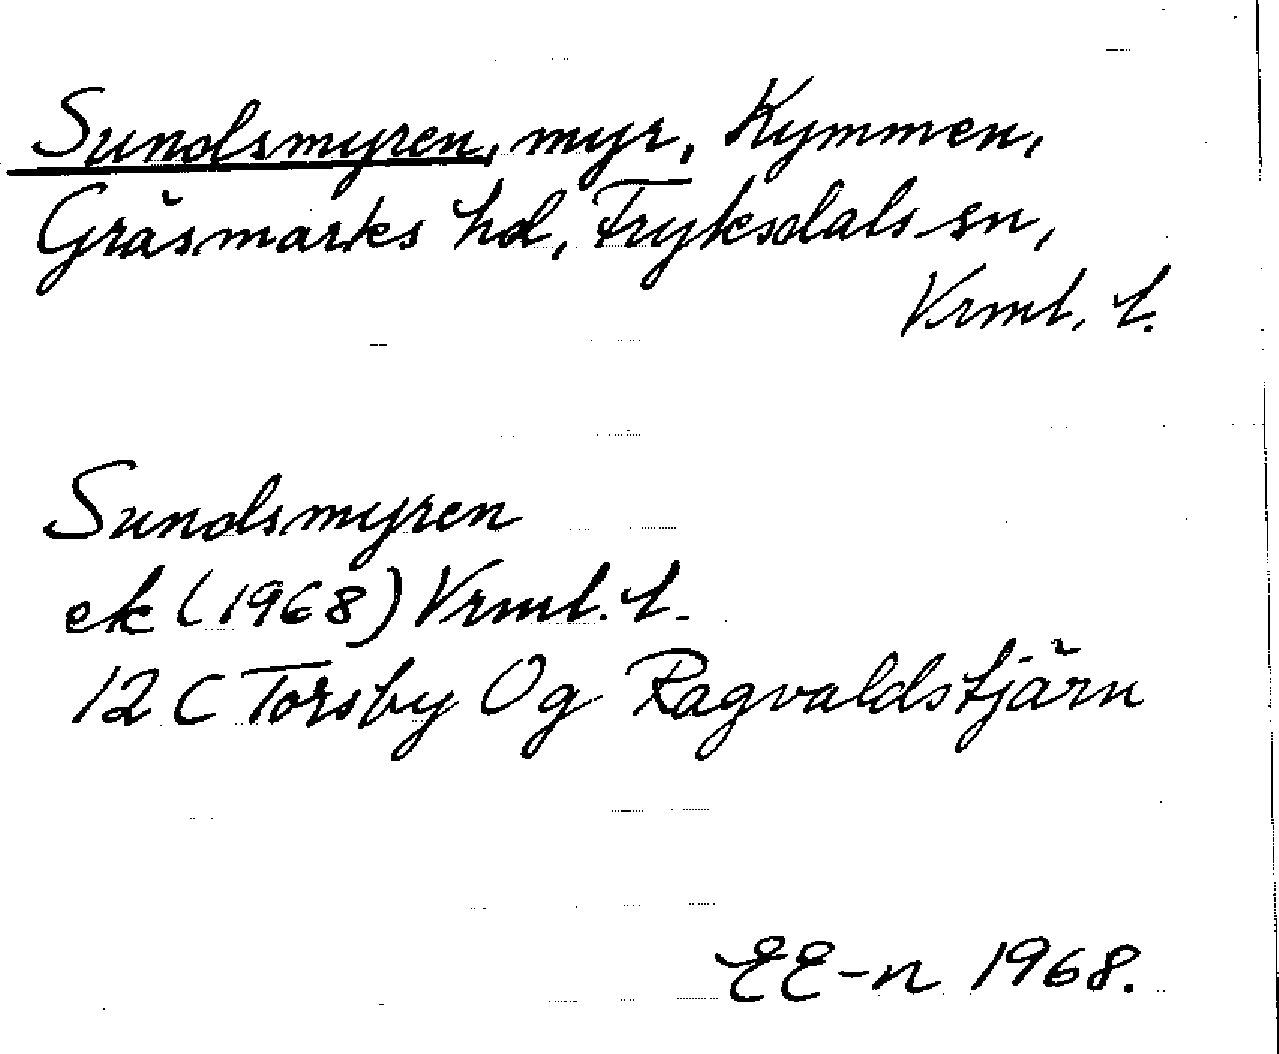 Sundsmyren, myr, Kymmen,
Gräsmarks hd, Fryksdals sn,
Vrml. l.
Sundsmyren
ek (1968) Vrml. l.
12 C Torsby Og Ragvaldstjärn
EE-n 1968.